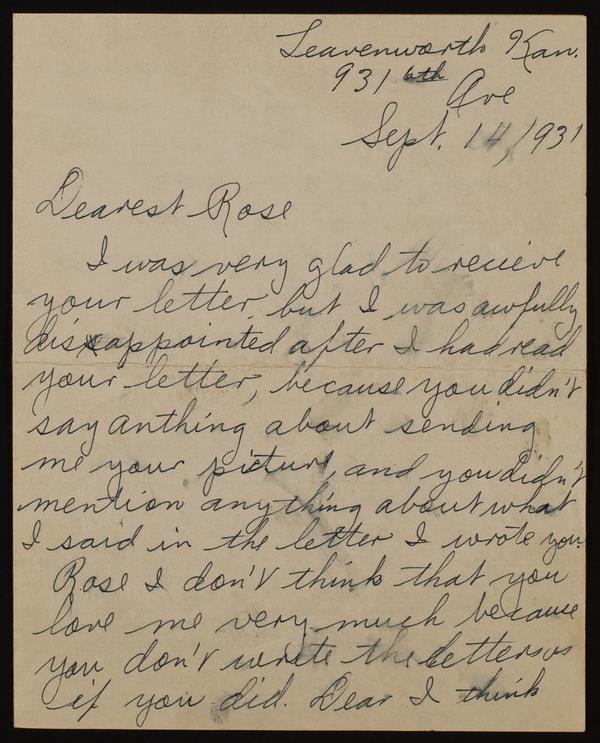 Leavenworth Kan.
931 6th
Ave
Sept. 14, 1931
Dearest Rose
I was very glad to recieve
your letter, but I was awfully
disappointed after I had read
your letter, because you didn't
say anthing about sending
me your picture, and you didn't
mention anything about what
I said in the letter I wrote you.
Rose I don't think that you
love me very much because
you don't wrete the letters as
if you did. Dear I think